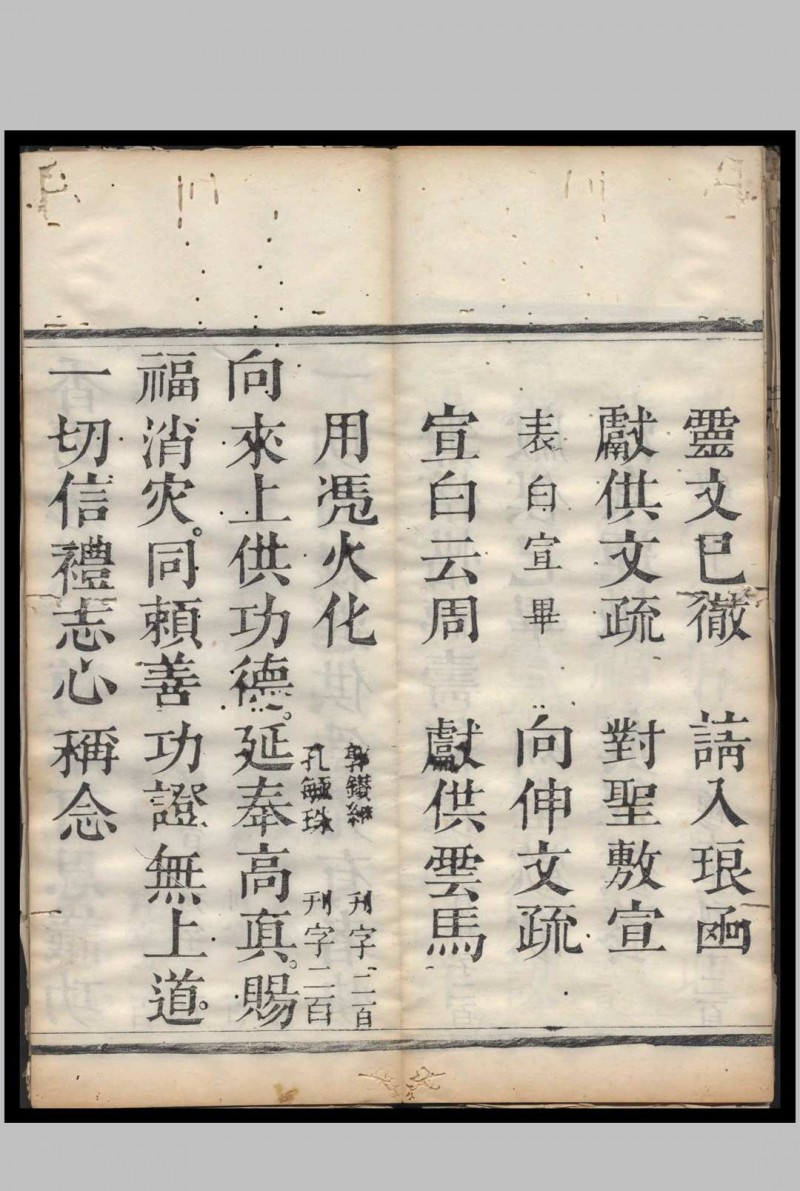 靈文巳徹 請入琅函
獻供文疏 對聖敷宣
表白宣畢 向伸文疏
宣白云周 獻供雲馬
用凴火化
刊字二百
孔毓珠 刊字二百
向來上供功德。延奉高真。賜
福消灾。同頼善功證無上道。
一切信禮志心稱念